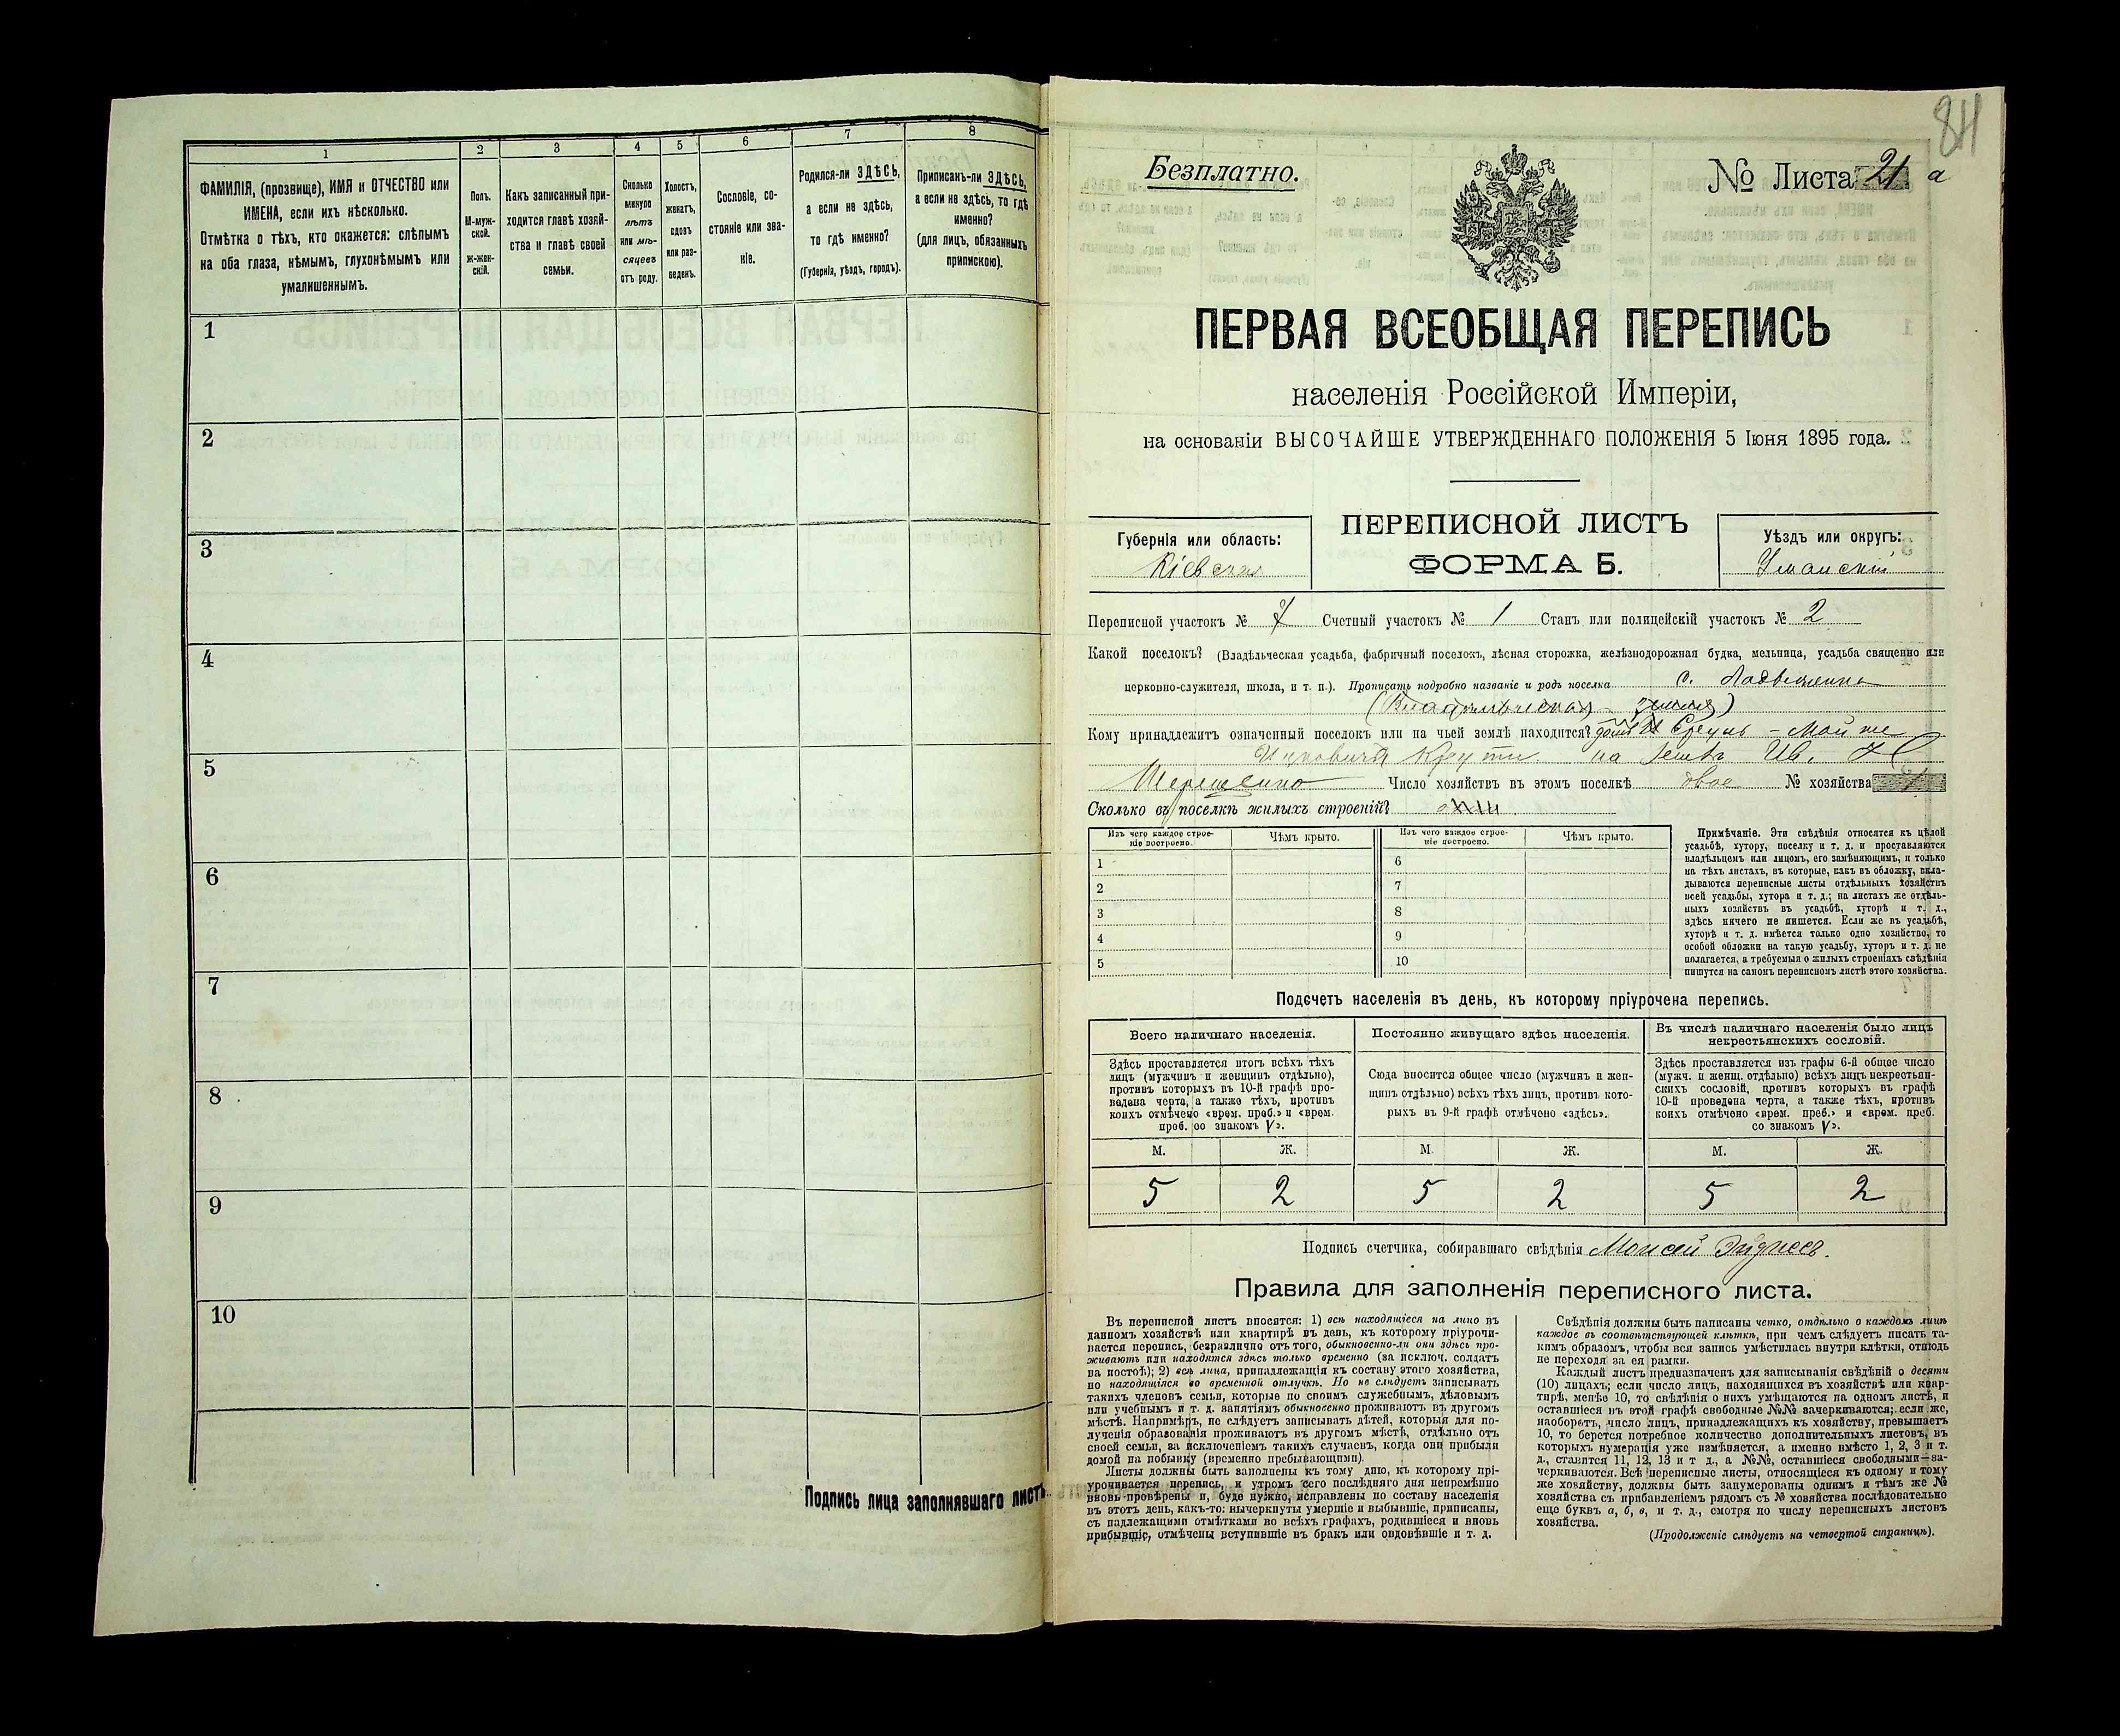 1
2
3
4
5
6
7
8
ФАМИЛІЯ, (прозвище), ИМЯ и ОТЧЕСТВО или
ИМЕНА, если ихъ нѣсколько.
Отмѣтка о тѣхъ, кто окажется: слѣпымъ
на оба глаза, нѣмымъ, глухонѣмымъ или
умалишеннымъ.
Полъ.
М-муж-
ской.
Ж-жен-
скій.
Какъ записанный при-
ходится главѣ хозяй-
ства и главѣ своей
семьи.
Сколько
минуло
лѣтъ
или мѣ-
сяцевъ
отъ роду.
Холостъ,
женатъ,
вдовъ
или раз-
веденъ.
Сословіе, со-
стояніе или зва-
ніе.
Родился-ли ЗДѢСЬ,
а если не здѣсь,
то гдѣ именно?
(Губернія, уѣздъ, городъ).
Приписанъ-ли ЗДѢСЬ,
а если не здѣсь, то гдѣ
именно?
(для лицъ, обязанныхъ
припискою).
1
2
3
4
5
6
7
8
9
10
Подпись лица заполнявшаго листъ
84
Безплатно.
№ Листа 21 а
ПЕРВАЯ ВСЕОБЩАЯ ПЕРЕПИСЬ
населенія Россійской Имперіи,
на основаніи ВЫСОЧАЙШЕ УТВЕРЖДЕННАГО ПОЛОЖЕНІЯ 5 Іюня 1895 года.
Губернія или область:
Кіевская
ПЕРЕПИСНОЙ ЛИСТЪ
ФОРМА Б.
Уѣздъ или округъ:
Уманскій
Переписной участокъ № 7 Счетный участокъ № 1 Станъ или полицейскій участокъ № 2
Какой поселокъ? (Владѣльческая усадьба, фабричный поселокъ, лѣсная сторожка, желѣзнодорожная будка, мельница, усадьба священно или
церковно-служителя, школа, и т. п.). Прописать подробно названіе и родъ поселка с.
Кому принадлежитъ означенный поселокъ или на чьей землѣ находится?
на землѣ Ив.
Число хозяйствъ въ этомъ поселкѣ двое № хозяйства 1
Сколько въ поселкѣ жилыхъ строеній?
Изъ чего каждое строе-
ніе построено.
Чѣмъ крыто.
Изъ чего каждое строе-
ніе построено.
Чѣмъ крыто.
1
2
3
4
5
6
7
8
9
10
Примѣчаніе. Эти свѣдѣнія относятся къ цѣлой
усадьбѣ, хутору, поселку и т. д. и проставляются
владѣльцемъ или лицомъ, его замѣняющимъ, и только
на тѣхъ листахъ, въ которые, какъ въ обложку, вкла-
дываются переписные листы отдѣльныхъ хозяйствъ
всей усадьбы, хутора и т. д.; на листахъ же отдѣль-
ныхъ хозяйствъ въ усадьбѣ, хуторѣ и т. д.,
здѣсь ничего не пишется. Если же въ усадьбѣ,
хуторѣ и т. д. имѣется только одно хозяйство, то
особой обложки на такую усадьбу, хуторъ и т. д. не
полагается, а требуемыя о жилыхъ строеніяхъ свѣдѣнія
пишутся на самомъ переписномъ листѣ этого хозяйства.
Подсчетъ населенія въ день, къ которому пріурочена перепись.
Всего наличнаго населенія.
Здѣсь проставляется итогъ всѣхъ тѣхъ
лицъ (мужчинъ и женщинъ отдѣльно),
противъ которыхъ въ 10-й графѣ про-
ведена черта, а также тѣхъ, противъ
коихъ отмѣчено «врем. преб.» и «врем.
преб. со знакомъ V».
Постоянно живущаго здѣсь населенія.
Сюда вносится общее число (мужчинъ и жен-
щинъ отдѣльно) всѣхъ тѣхъ лицъ, противъ кото-
рыхъ въ 9-й графѣ отмѣчено «здѣсь».
Въ числѣ наличнаго населенія было лицъ
некрестьянскихъ сословій.
Здѣсь проставляется изъ графы 6-й общее число
(мужч. и женщ. отдѣльно) всѣхъ лицъ некрестьян-
скихъ сословій, противъ которыхъ въ графѣ
10-й проведена черта, а также тѣхъ, противъ
коихъ отмѣчено «врем. преб.» и «врем. преб.
со знакомъ V».
М. Ж. М. Ж. М. Ж.
5 2 5 2 5 2
Подпись счетчика, собиравшаго свѣдѣнія Моисей
Правила для заполненія переписного листа.
Въ переписной листъ вносятся: 1) всѣ находящіеся на лицо въ
данномъ хозяйствѣ или квартирѣ въ день, къ которому пріурочи-
вается перепись, безразлично отъ того, обыкновенно-ли они здѣсь про-
живаютъ или находятся здѣсь только временно (за исключ. солдатъ
на постоѣ); 2) всѣ лица, принадлежащія къ составу этого хозяйства,
но находящіяся во временной отлучкѣ. Но не слѣдуетъ записывать
такихъ членовъ семьи, которые по своимъ служебнымъ, дѣловымъ
или учебнымъ и т. д. занятіямъ обыкновенно проживаютъ въ другомъ
мѣстѣ. Напримѣръ, не слѣдуетъ записывать дѣтей, которыя для по-
лученія образованія проживаютъ въ другомъ мѣстѣ, отдѣльно отъ
своей семьи, за исключеніемъ такихъ случаевъ, когда они прибыли
домой на побывку (временно пребывающими).
Листы должны быть заполнены къ тому дню, къ которому прі-
урочивается перепись, и утромъ сего послѣдняго дня непремѣнно
вновь провѣрены и, буде нужно, исправлены по составу населенія
въ этотъ день, какъ-то: вычеркнуты умершіе и выбывшіе, приписаны,
съ надлежащими отмѣтками во всѣхъ графахъ, родившіеся и вновь
прибывшіе, отмѣчены вступившіе въ бракъ или овдовѣвшіе и т. д.
Свѣдѣнія должны быть написаны четко, отдѣльно о каждомъ лицѣ
каждое въ соотвѣтствующей клѣткѣ, при чемъ слѣдуетъ писать та-
кимъ образомъ, чтобы вся запись умѣстилась внутри клѣтки, отнюдь
не переходя за ея рамки.
Каждый листъ предназначенъ для записыванія свѣдѣній о десяти
(10) лицахъ; если число лицъ, находящихся въ хозяйствѣ или квар-
тирѣ, менѣе 10, то свѣдѣнія о нихъ умѣщаются на одномъ листѣ, и
оставшіеся въ этой графѣ свободные №№ зачеркиваются; если же,
наоборотъ, число лицъ, принадлежащихъ къ хозяйству, превышаетъ
10, то берется потребное количество дополнительныхъ листовъ, въ
которыхъ нумерація уже измѣняется, а именно вмѣсто 1, 2, 3 и т.
д., ставятся 11, 12, 13 и т д., а №№, оставшіеся свободными—за-
черкиваются. Всѣ переписные листы, относящіеся къ одному и тому
же хозяйству, должны быть занумерованы однимъ и тѣмъ же №
хозяйства съ прибавленіемъ рядомъ съ № хозяйства послѣдовательно
еще буквъ а, б, в, и т. д., смотря по числу переписныхъ листовъ
хозяйства.
(Продолженіе слѣдуетъ на четвертой страницѣ).